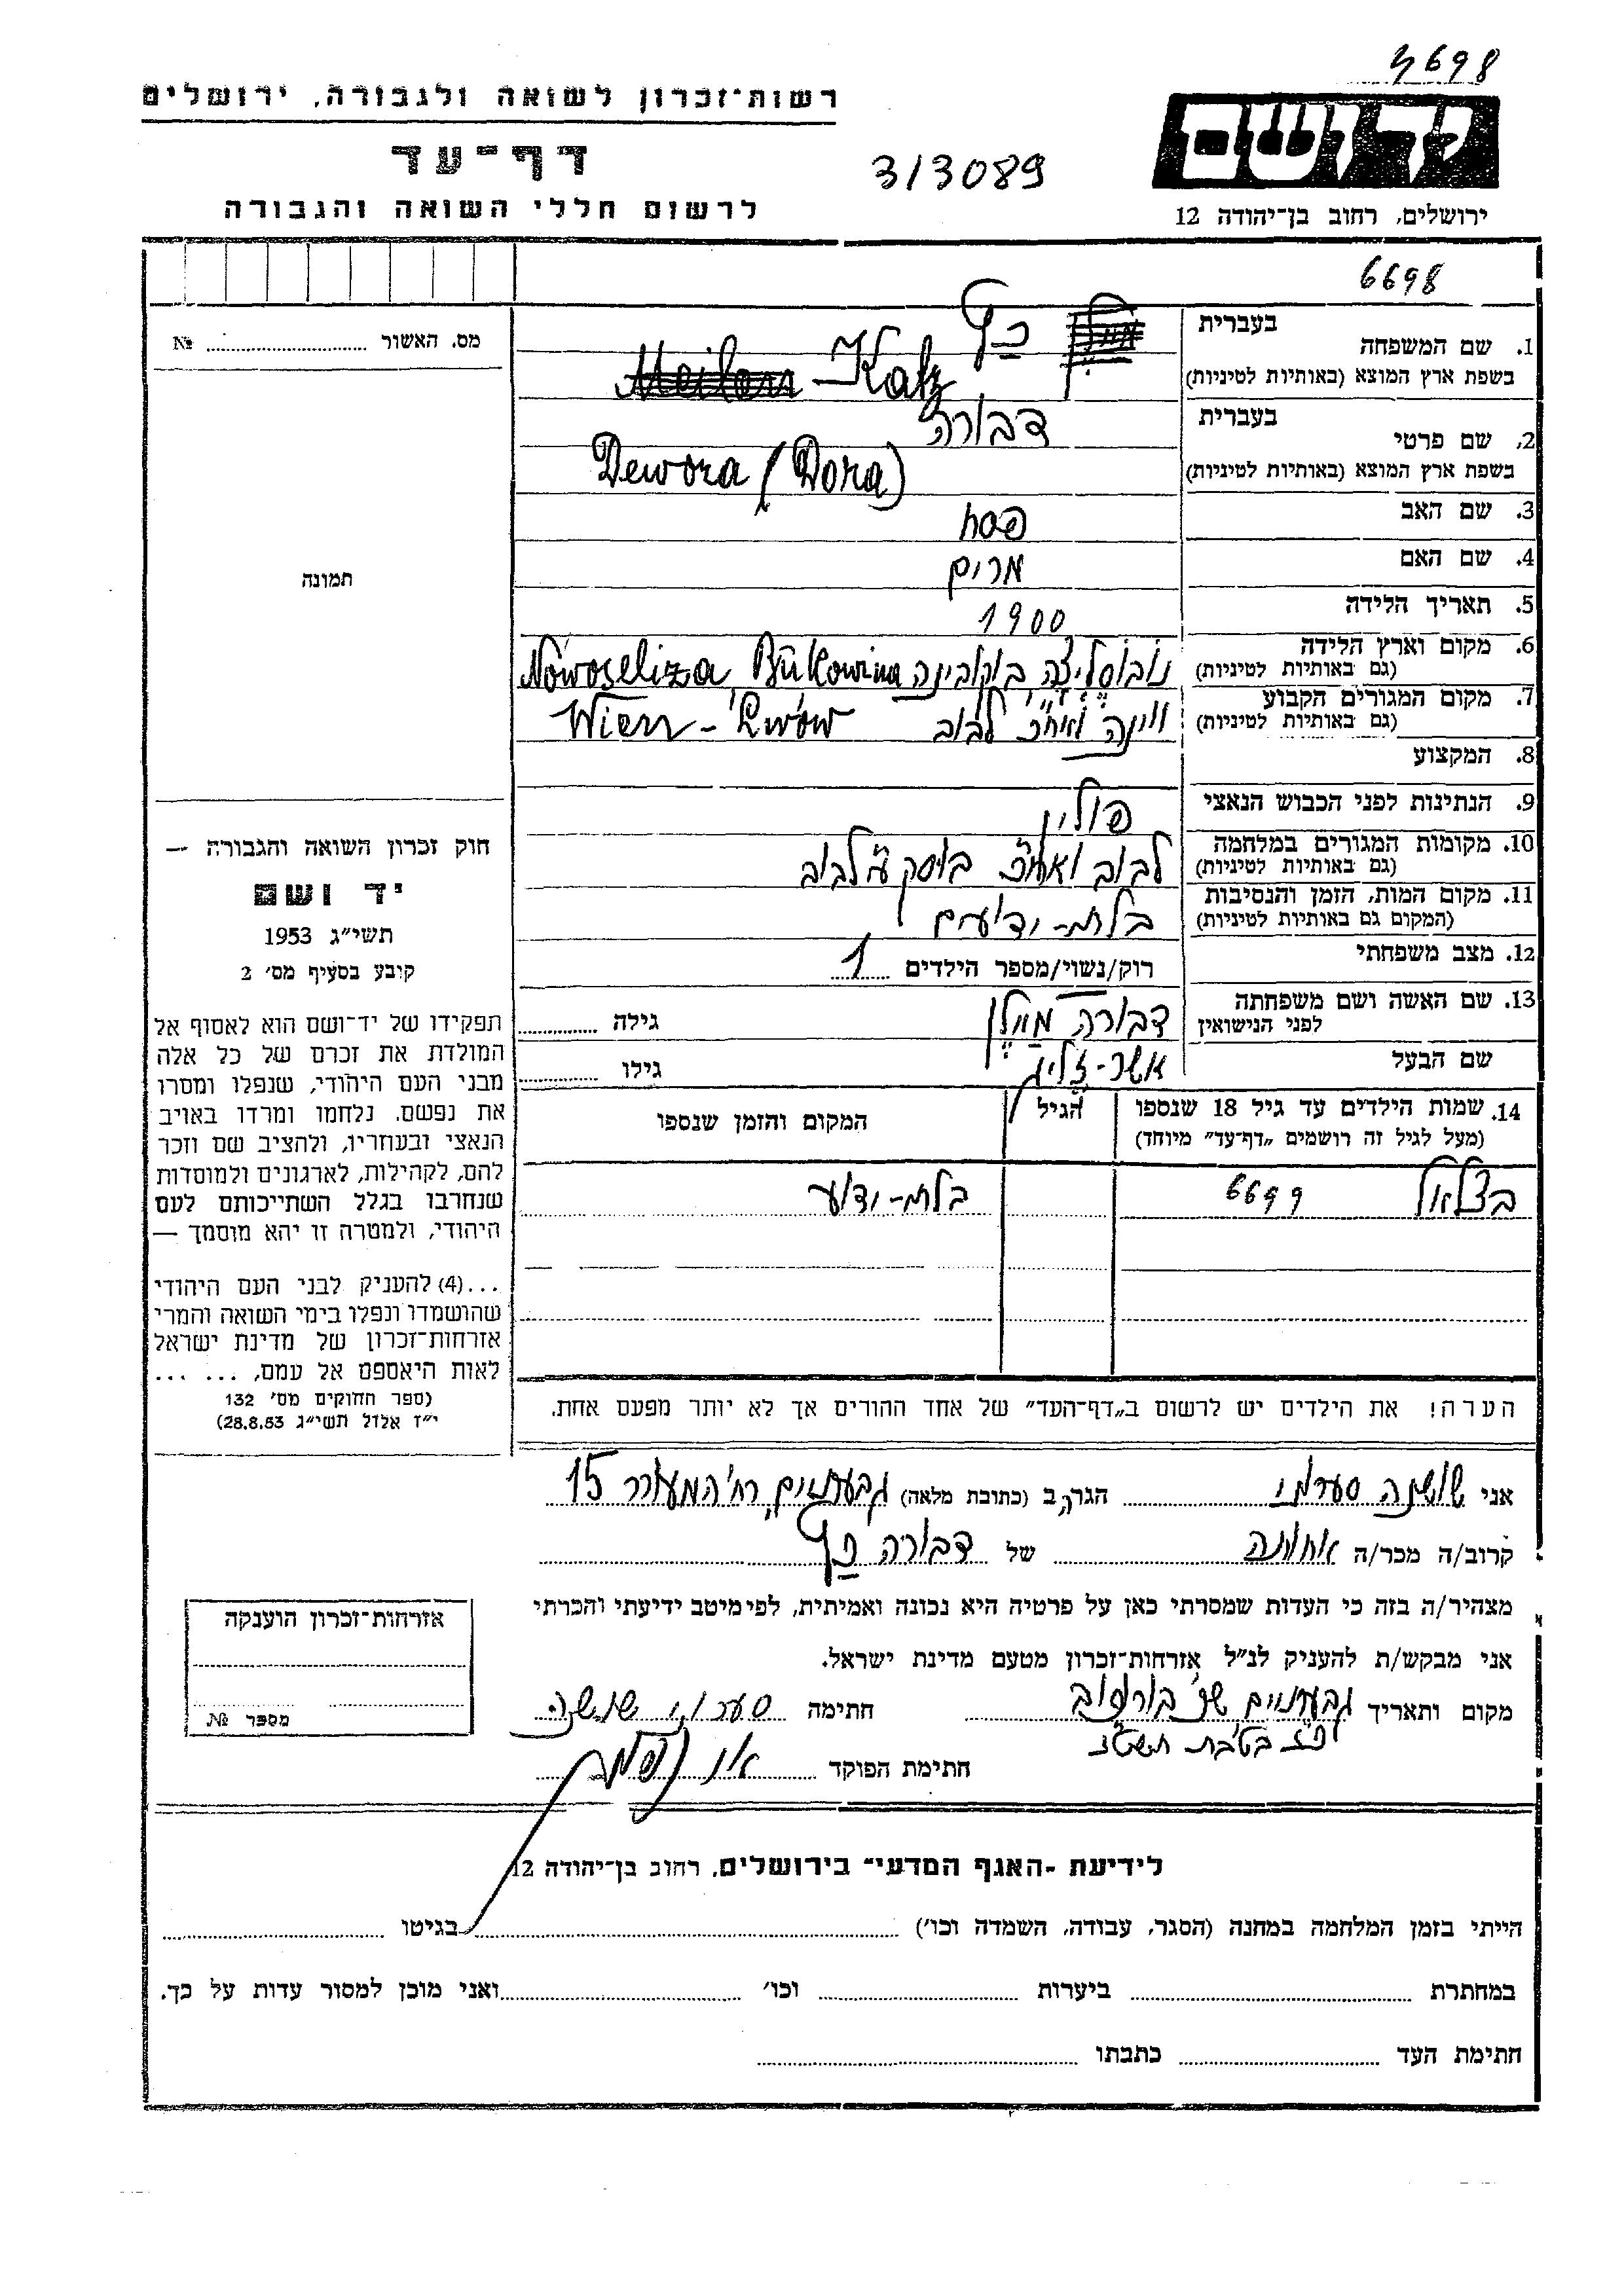 6698
רשות־זכרון לשואה ולגבורה, ירושלים
ידושם
דף־עד
3/3089
לרשום חללי השואה והגבורה
ירושלים, רחוב בן־יהודה 12
6698
1. שם המשפחה בעברית כץ
בשפת ארץ המוצא (באותיות לטיניות) Katz
2. שם פרטי בעברית דבורה
בשפת ארץ המוצא (באותיות לטיניות) Dewora (Dora)
3. שם האב פסח
4. שם האם מרים
5. תאריך הלידה 1900
6. מקום וארץ הלידה (גם באותיות לטיניות) נובוסליצה בוקובינה Nowoseliza Bukowina
7. מקום המגורים הקבוע (גם באותיות לטיניות) ווינה ואח"כ לבוב Wien - Lwów
8. המקצוע
9. הנתינות לפני הכבוש הנאצי פולין
10. מקומות המגורים במלחמה (גם באותיות לטיניות) לבוב ואח"כ בוסק ע"י לבוב
11. מקום המות, הזמן והנסיבות (המקום גם באותיות לטיניות) בלתי-ידועים
12. מצב משפחתי רוק/נשוי/מספר הילדים 1
13. שם האשה ושם משפחתה לפני הנישואין דבורה מיילן גילה
שם הבעל אשר-זליג גילו
14. שמות הילדים עד גיל 18 שנספו הגיל המקום והזמן שנספו
(מעל לגיל זה רושמים „דף־עד" מיוחד)
בצלאל 6699 בלתי-ידוע
הערה! את הילדים יש לרשום ב„דף־העד" של אחד ההורים אך לא יותר מפעם אחת.
מס. האשור №
תמונה
חוק זכרון השואה והגבורה —
יד ושם
תשי"ג 1953
קובע בסעיף מס׳ 2
תפקידו של יד־ושם הוא לאסוף אל
המולדת את זכרם של כל אלה
מבני העם היהודי, שנפלו ומסרו
את נפשם, נלחמו ומרדו באויב
הנאצי ובעוזריו, ולהציב שם וזכר
להם, לקהילות, לארגונים ולמוסדות
שנחרבו בגלל השתייכותם לעם
היהודי, ולמטרה זו יהא מוסמך —
...(4) להעניק לבני העם היהודי
שהושמדו ונפלו בימי השואה והמרי
אזרחות־זכרון של מדינת ישראל
לאות היאספם אל עמם, ... ...
(ספר החוקים מס׳ 132
י"ז אלול תשי"ג 28.8.53)
אני שושנה הגר/ה ב (כתובת מלאה) גבעתיים, רח׳ המעורר 15
קרוב/ה מכר/ה אחותה של דבורה כץ
מצהיר/ה בזה כי העדות שמסרתי כאן על פרטיה היא נכונה ואמיתית, לפי מיטב ידיעתי והכרתי
אני מבקש/ת להעניק לנ"ל אזרחות־זכרון מטעם מדינת ישראל.
מקום ותאריך גבעתיים שכ׳ בורוכוב חתימה שושנה
בטבת תשט"ז
חתימת הפוקד
אזרחות־זכרון הוענקה
מספר №
לידיעת ־האגף המדעי־ בירושלים, רחוב בן־יהודה 12
הייתי בזמן המלחמה במחנה (הסגר, עבודה, השמדה וכו׳) בגיטו
במחתרת ביערות וכו׳ ואני מוכן למסור עדות על כך.
חתימת העד כתבתו